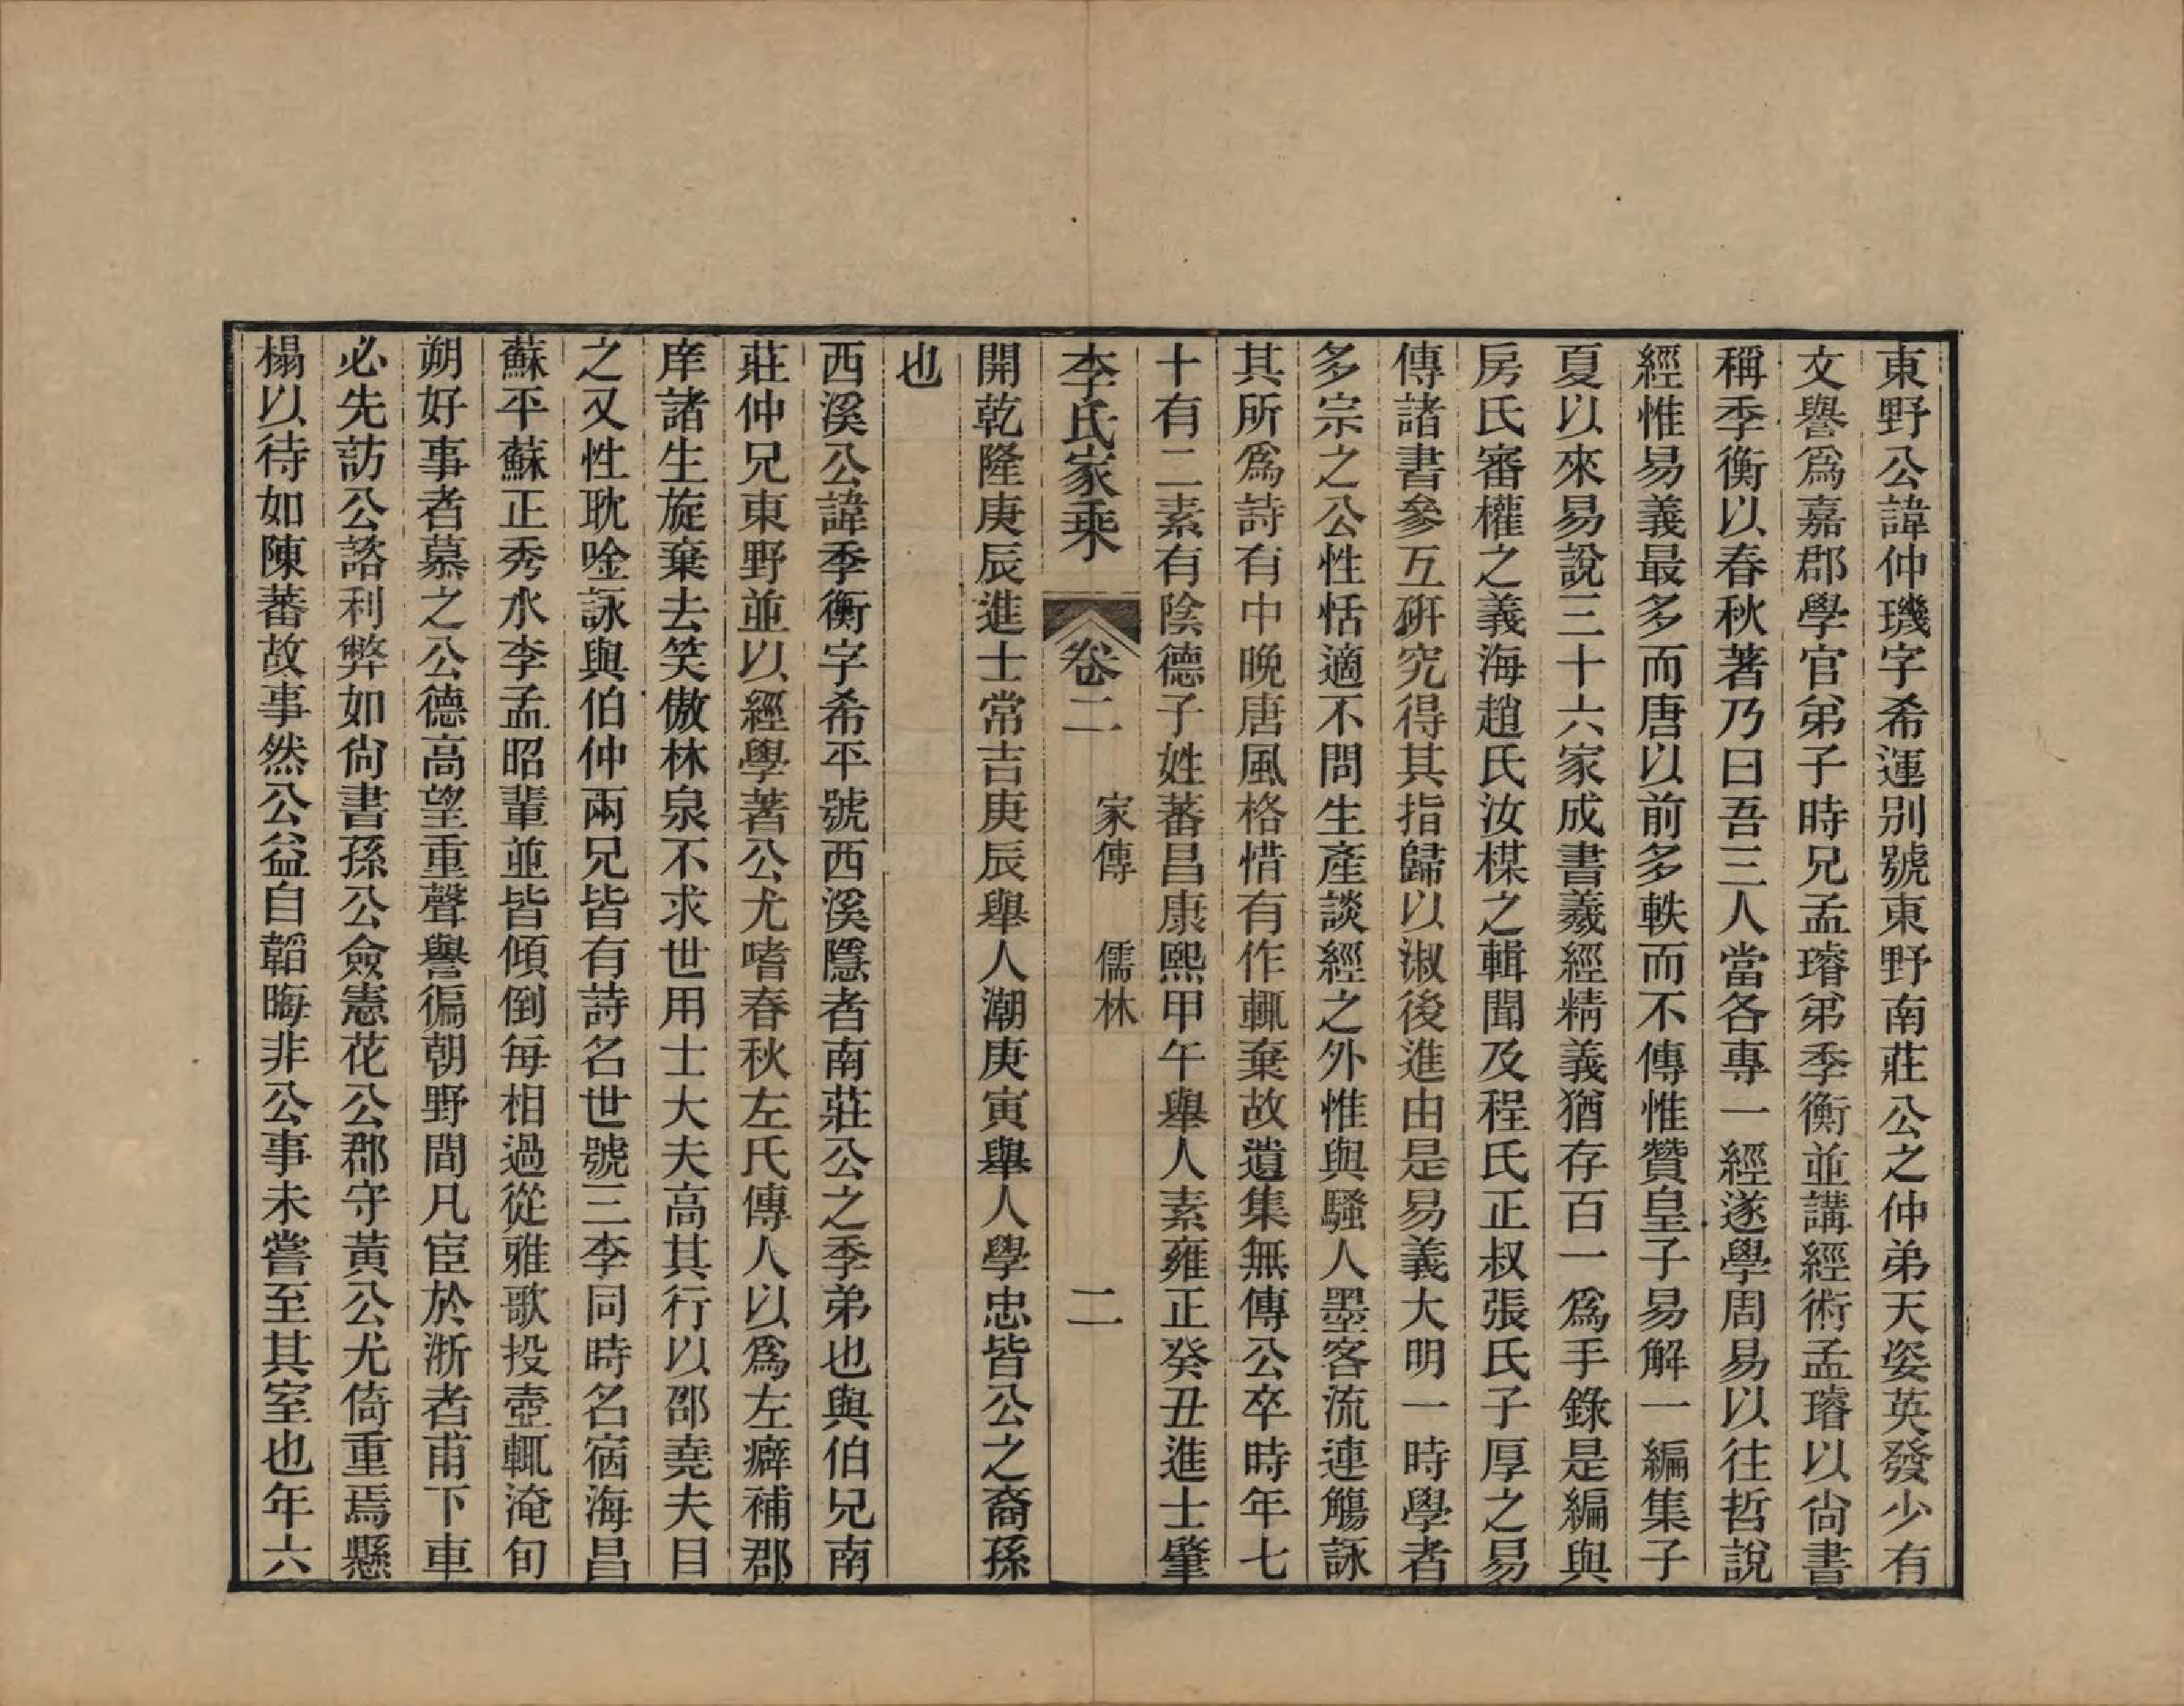 東野公諱仲璣字希運别號東野南莊公之仲弟天姿英發少有
文譽爲嘉郡學官弟子時兄孟璿弟季衡並講經術孟璿以尙書
稱季衡以春秋著乃曰吾三人當各專一經遂學周易以往哲說
經惟易義最多而唐以前多軼而不傳惟贊皇子易解一編集子
夏以來易說三十六家成書羲經精義猶存百一爲手錄是編與
房氏審權之義海趙氏汝楳之輯聞及程氏正叔張氏子厚之易
傳諸書參互硏究得其指歸以淑後進由是易義大明一時學者
多宗之公性恬適不問生產談經之外惟與騷人墨客流連觴詠
其所爲詩有中晚唐風格惜有作輒棄故遺集無傳公卒時年七
十有二素有陰德子姓蕃昌康熙甲午舉人素雍正癸丑進士肇
李氏家乘 卷二 家傳 儒林 二
開乾隆庚辰進士常吉庚辰舉人潮庚寅舉人學忠皆公之裔孫
也
西溪公諱季衡字希平號西溪隱者南莊公之季弟也與伯兄南
莊仲兄東野並以經學著公尤嗜春秋左氏傳人以爲左癖補郡
庠諸生旋棄去笑傲林泉不求世用士大夫高其行以邵堯夫目
之又性耽唫詠與伯仲兩兄皆有詩名世號三李同時名宿海昌
蘇平蘇正秀水李孟昭輩並皆傾倒每相過從雅歌投壺輒淹旬
朔好事者慕之公德高望重聲譽徧朝野間凡宦於浙者甫下車
必先訪公諮利弊如尙書孫公僉憲花公郡守黃公尤倚重焉懸
榻以待如陳蕃故事然公益自韜晦非公事未嘗至其室也年六